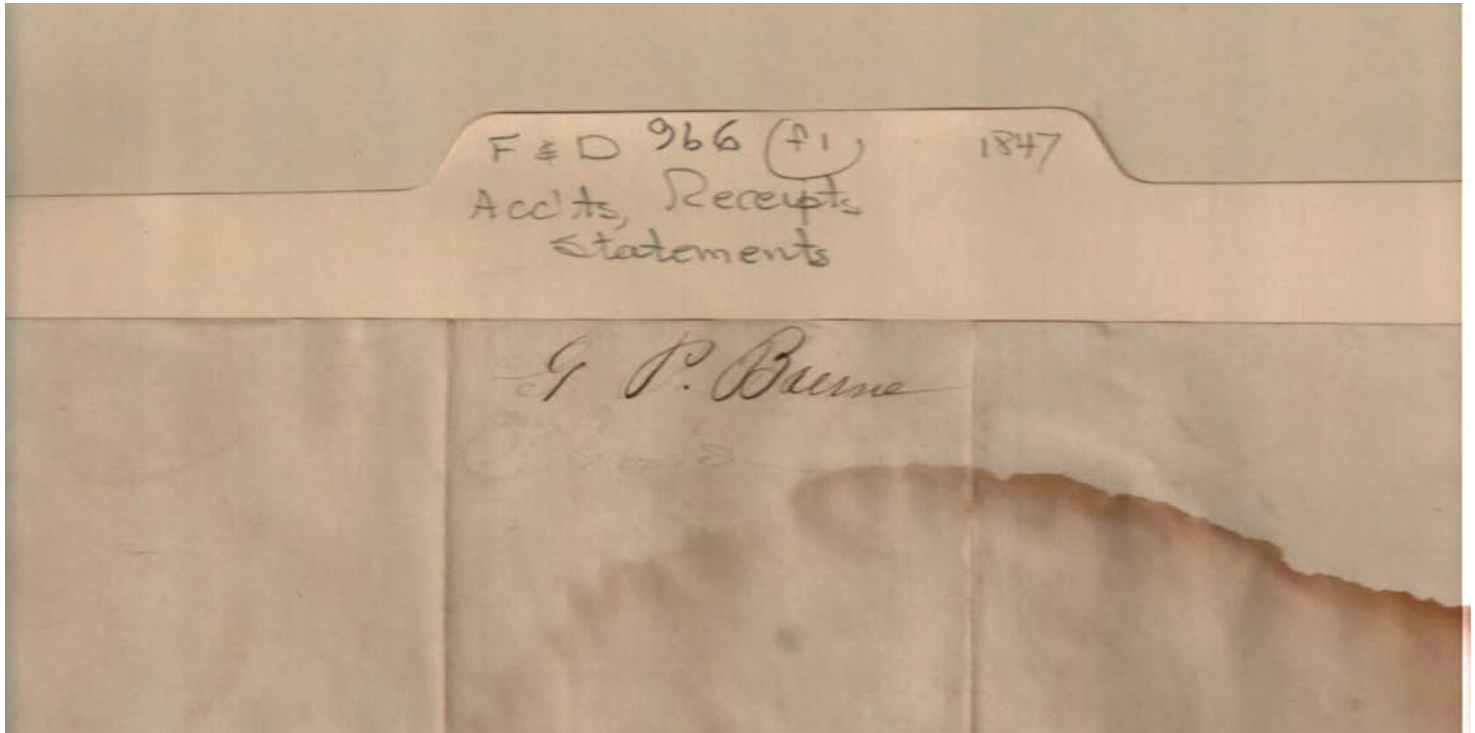 F & D 966 (f1) 1847
Acc'ts, Receipts
Statements
G P. Bourne